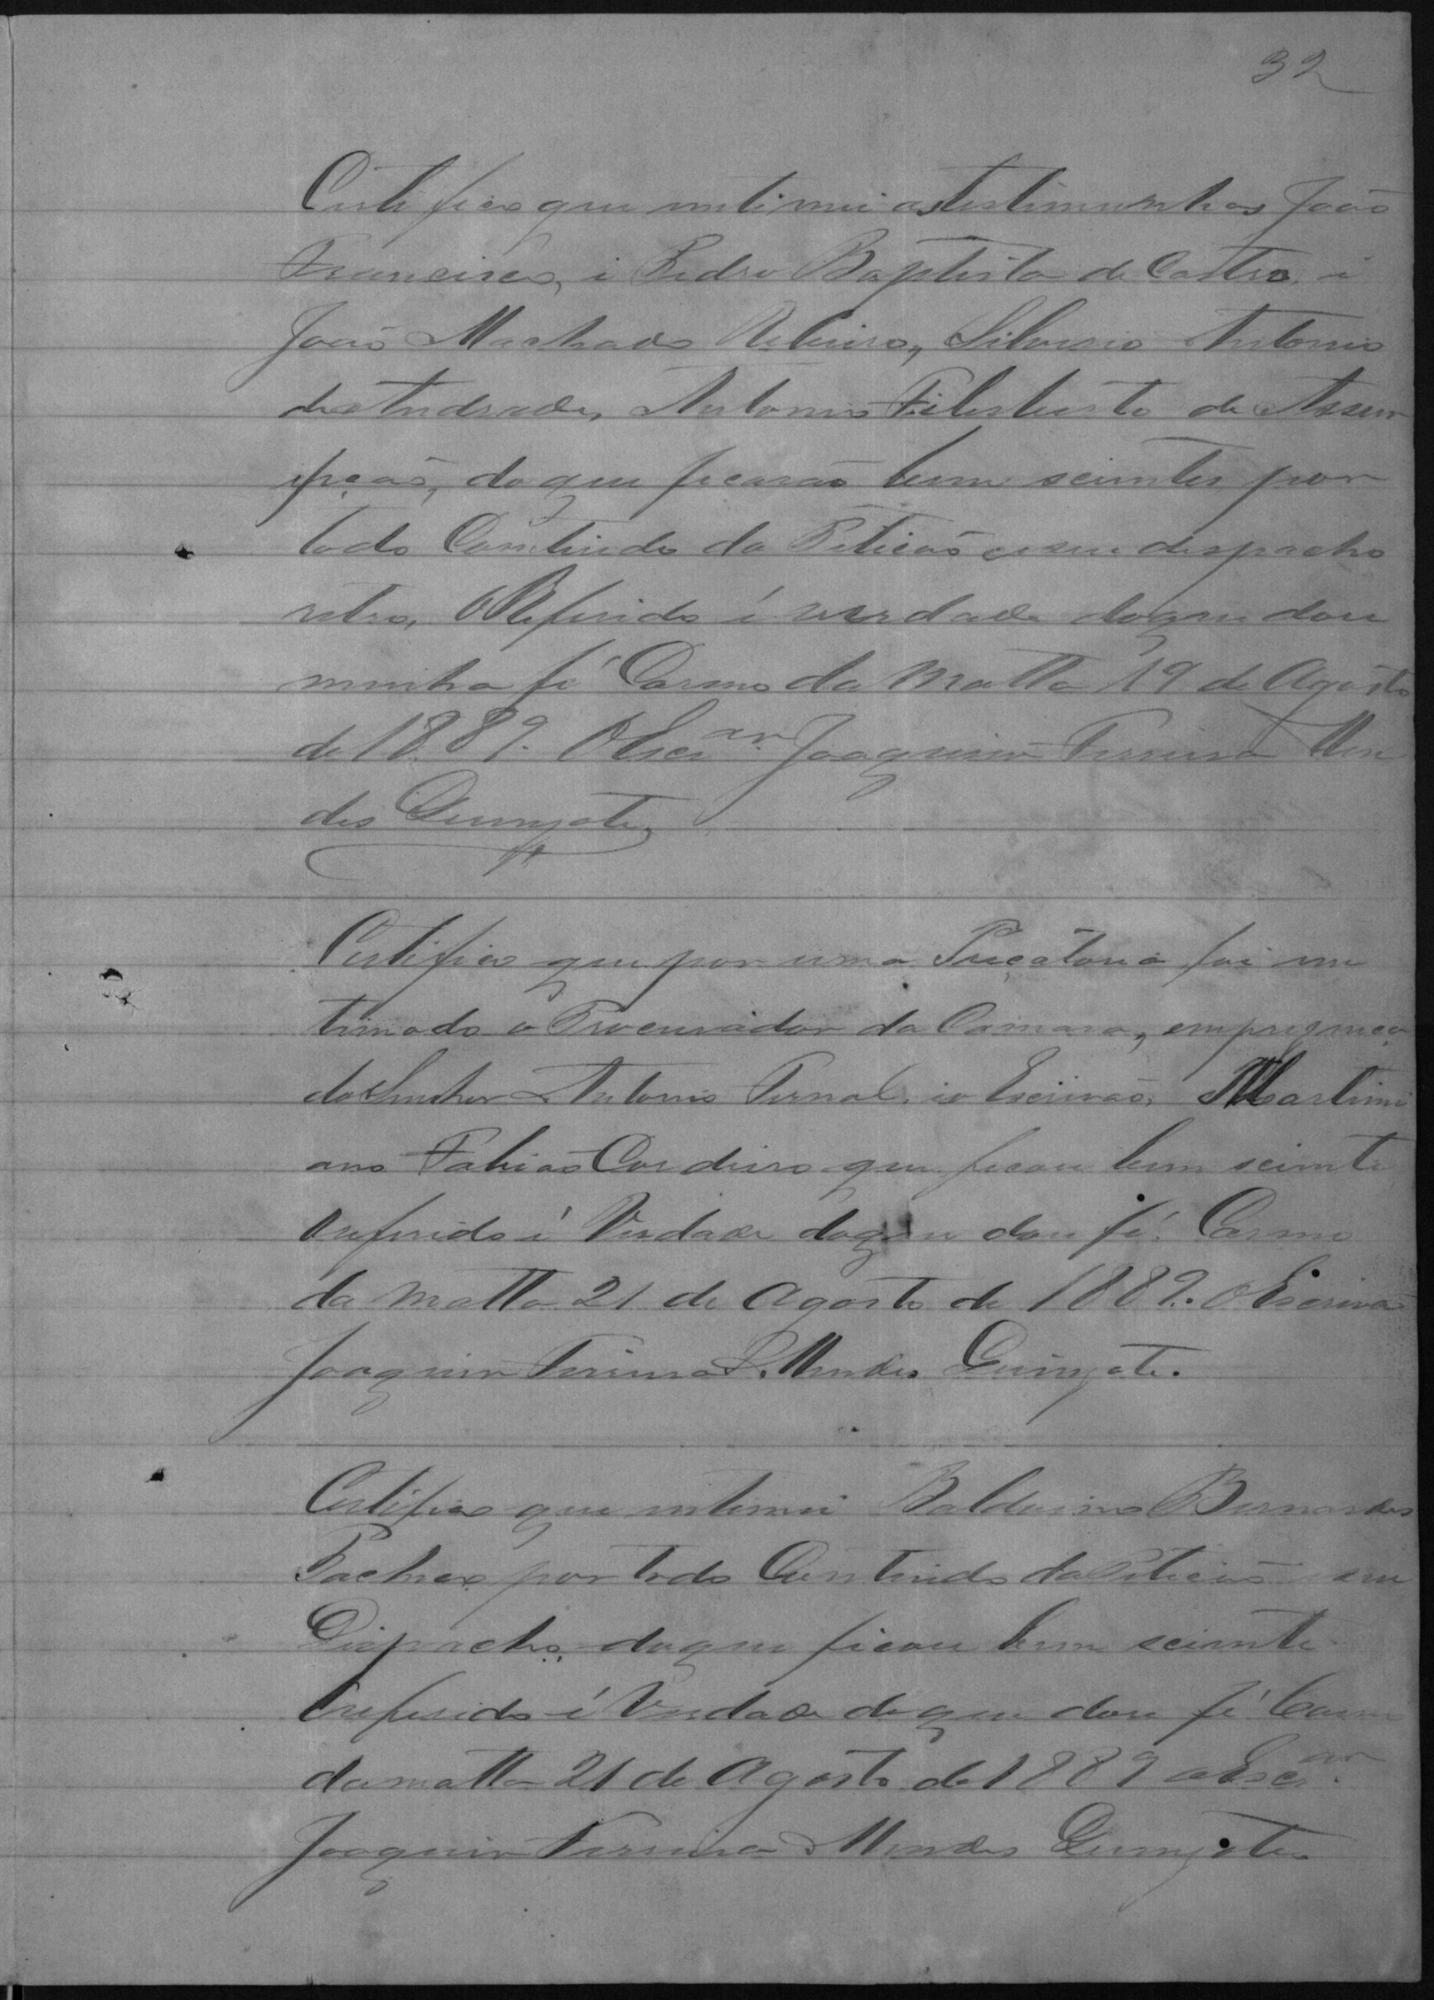 32
Certifico que intimei as testimunhas João
Francisco, i Pedro Baptista de Castro, i
João Machado Ribeiro, Silverio Antonio
de Andrade, Antonio Filisberto de Assum
pção, doque ficarão bem scientes por
todo Contiudo da Petição e seu despacho
retro, O Referido é verdade doque dou
minha fé Carmo da Matta 19 de Agosto
de 1889. O Escr.am Joaquim Ferreira Men
des
Certifico que por uma Precatoria foi in
timado o Procurador da Camara, em
do Senhor Antonio i o Escrivão, Martimi
ano Fabião Cordeiro que ficou bem sciente
Oreferido é Verdade doque dou fé. Carmo
da Matta 21 de Agosto de 1889. O Escrivão
Joaquim Ferreira Mendes
Certifico que intimei Balduino Bernardes
por todo Contiudo da Petição e seu
Dispacho, doque ficou bem sciente
Oreferido é Verdade de que dou fé Carmo
da matta 21 de Agosto de 1889 o Escr.am
Joaquim Ferreira Mendes